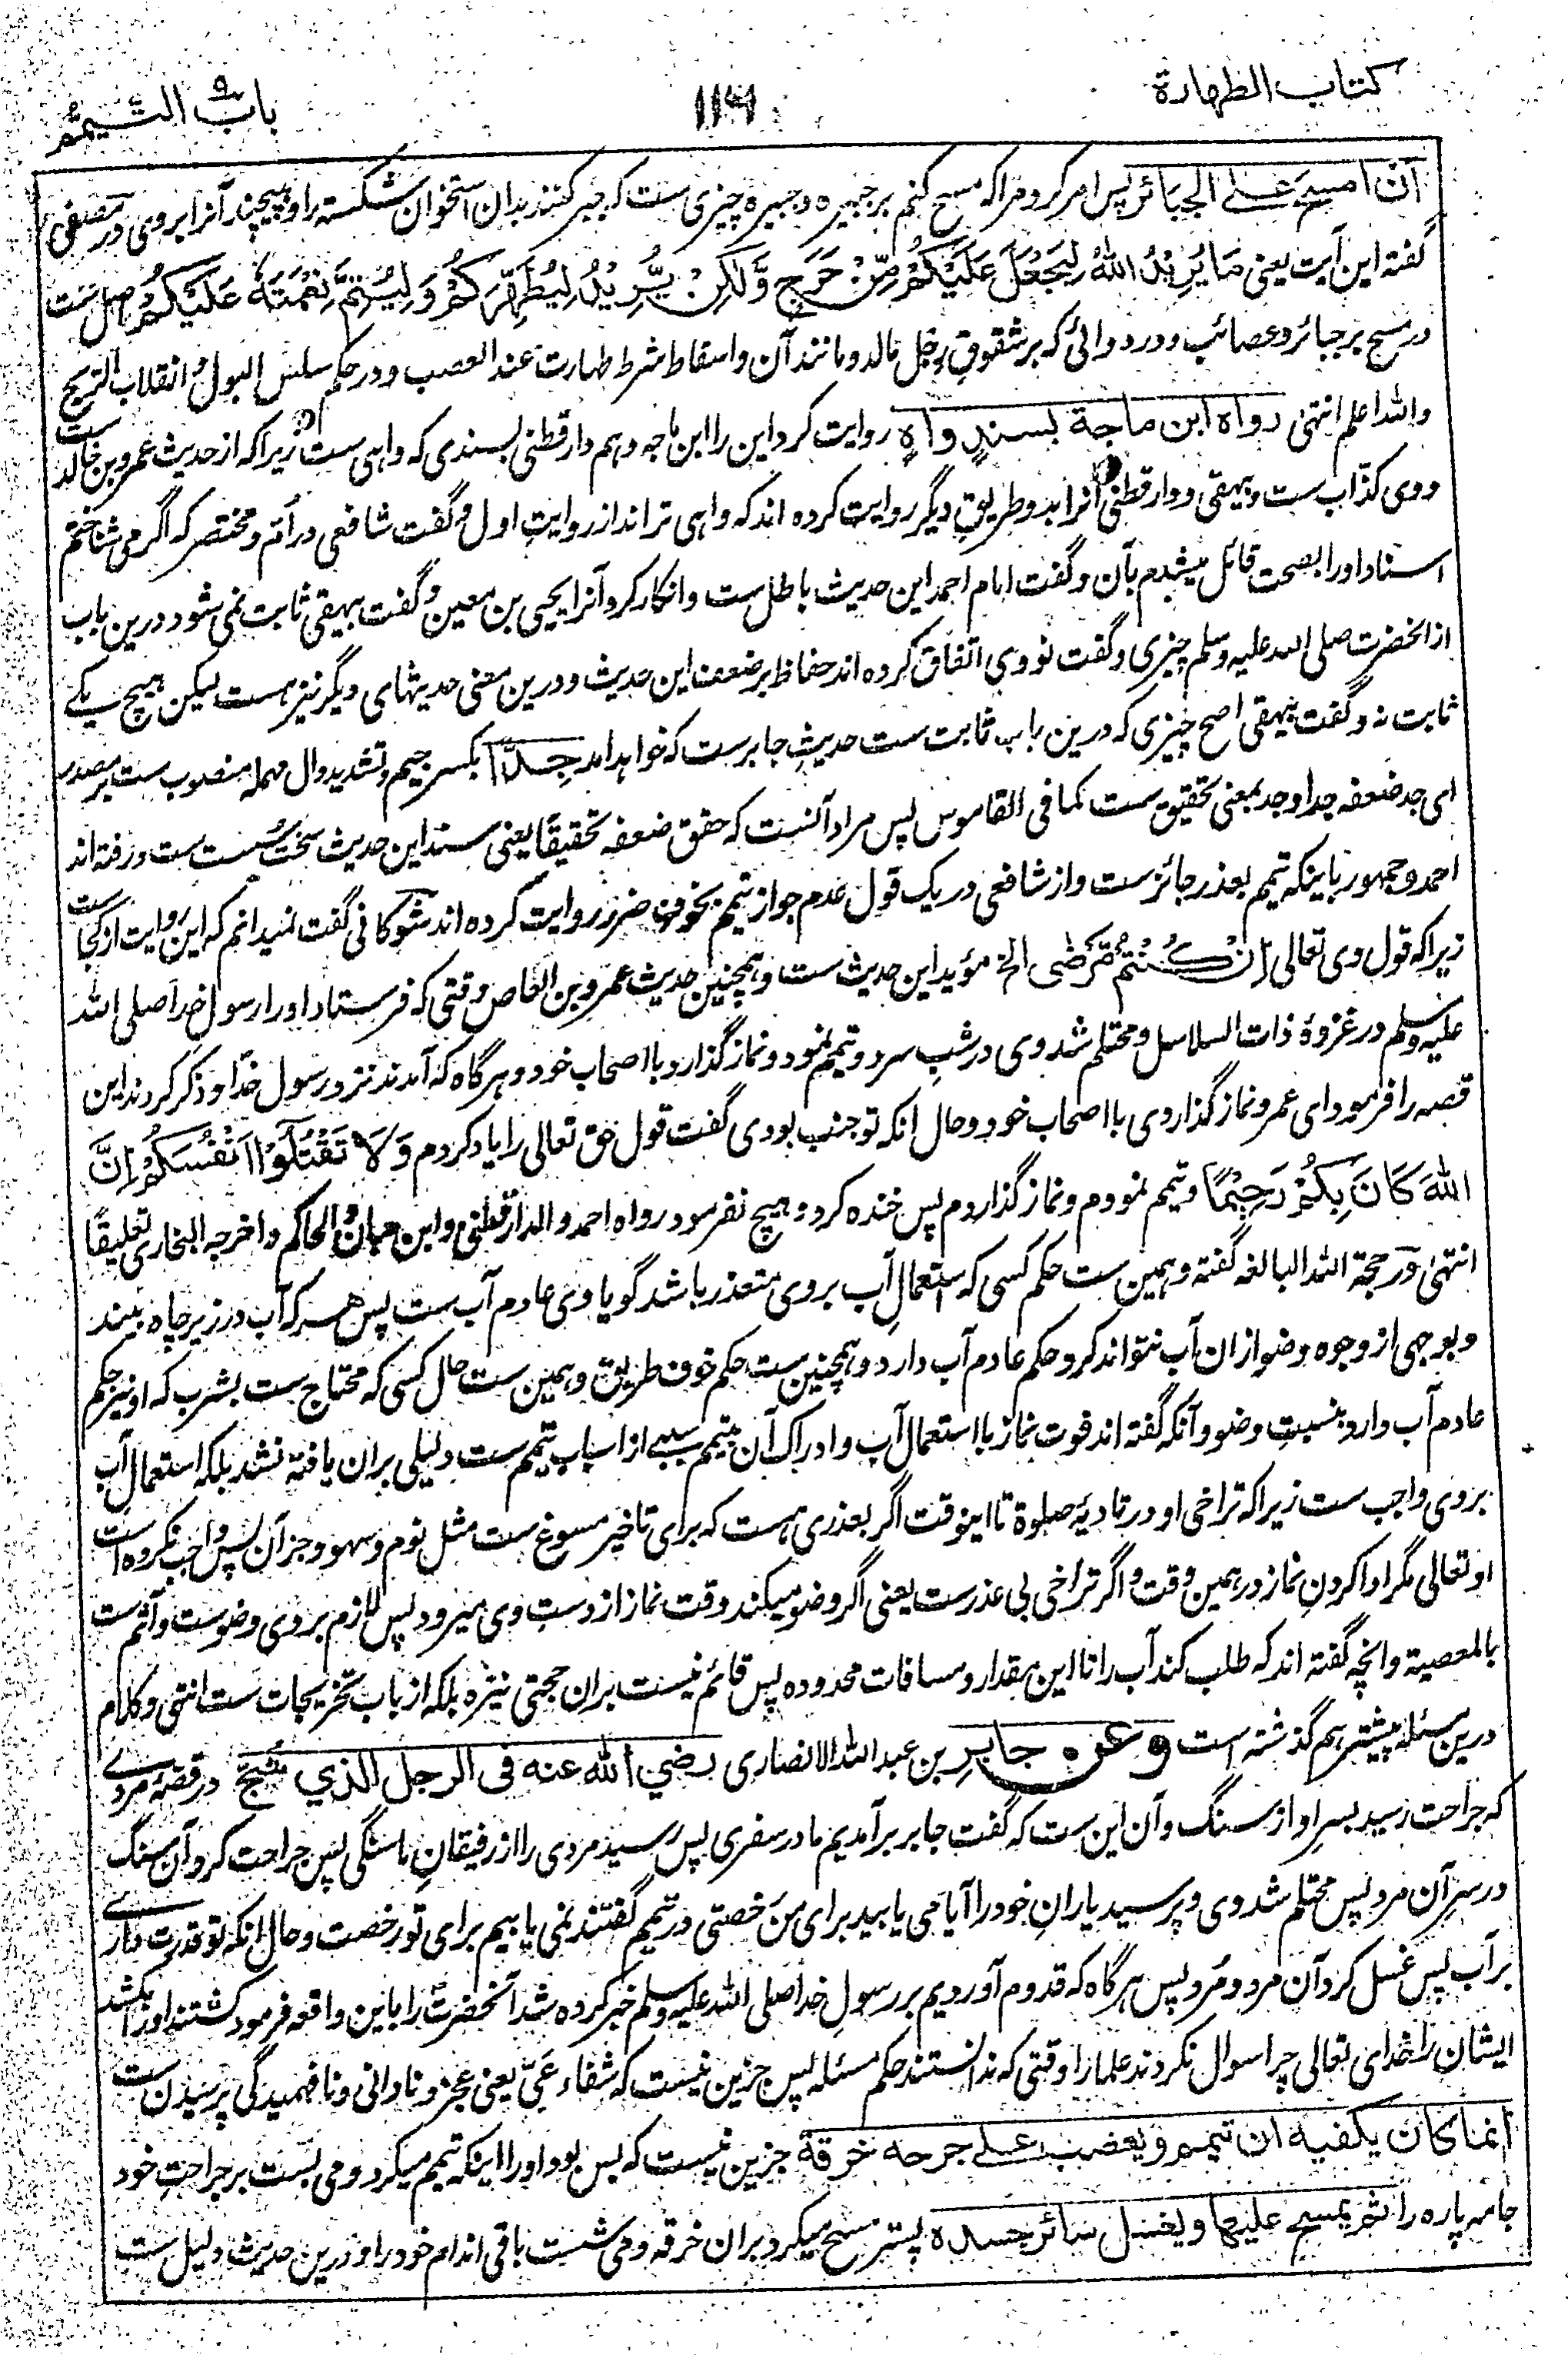 کتاب الطهارة
۱۱۶
باب التیمم
ان امسح علی الجبائر پس امر کرد مرا که مسح کنم بر جبیره و جبیره چیزی ست که جبر کنند بدان استخوان شکسته را و پیچند آنرا بروی در مصفی
گفته این آیت یعنی مَا یُرِیْدُ اللّٰهُ لِیَجْعَلَ عَلَیْکُمْ مِّنْ حَرَجٍ وَّلٰکِنْ یُّرِیْدُ لِیُطَهِّرَکُمْ وَلِیُتِمَّ نِعْمَتَهٗ عَلَیْکُمْ اصل ست
در مسح بر جبائر و عصائب و در دوائی که بر شقوق رِجل مالد و مانند آن و اسقاط شرط طهارت عند العصب و در حکم سلس البول و انقلاب الریح
والله اعلم انتهیٰ رواه ابن ماجة بسندٍ واهٍ روایت کرد این را ابن ماجه و هم دارقطنی بسندی که واهی ست زیرا که از حدیث عمرو بن خالد ست
و وی کذّاب ست و بیهقی و دارقطنی آنرا بدو طریقِ دیگر روایت کرده اند که واهی تر اند از روایتِ اول و گفت شافعی در اُمّ و مختصر که اگر می شناختم
اسناد او را بصحت قائل میشدم بآن و گفت امام احمد این حدیث باطل ست و انکار کرد آنرا یحیی بن معین و گفت بیهقی ثابت نمی شود درین باب
از انحضرت صلی الله علیه وسلم چیزی و گفت نووی اتفاق کرده اند حفاظ بر ضعف این حدیث و درین معنی حدیثهای دیگر نیز هست لیکن هیچ یکے
ثابت نه و گفت بیهقی اصح چیزی که درین باب ثابت ست حدیثِ جابر ست که خواهد آمد جِدًّا بکسر جیم و تشدید دال مهمله منصوب ست بر مصدر
ای جد ضعفه جدا و جد بمعنی تحقیق ست کما فی القاموس پس مراد آنست که حقق ضعفه تحقیقًا یعنی سند این حدیث سخت سُست ست و رفته اند
احمد و جمهور باینکه تیمم بعذر جائز ست و از شافعی در یک قول عدم جواز تیمم بخوف ضرر روایت کرده اند شوکانی گفت نمیدانم که این روایت از کجا ست
زیرا که قول وی تعالی اِنْ کُنْتُمْ مَّرْضٰی الخ مؤید این حدیث ست و همچنین حدیث عمرو بن العاص وقتی که فرستاد او را رسولِ خدا صلی الله
علیه وسلم در غزوهٔ ذات السلاسل و محتلم شد وی در شبِ سرد و تیمم نمود و نماز گذارد با اصحاب خود و هرگاه که آمدند نزد رسول خدا و ذکر کردند این
قصه را فرمود ای عمرو نماز گذاردی با اصحاب خود و حال انکه تو جنب بودی گفت قول حق تعالی را یاد کردم وَلَا تَقْتُلُوْا اَنْفُسَکُمْ اِنَّ
اللّٰهَ کَانَ بِکُمْ رَحِیْمًا و تیمم نمودم و نماز گذاردم پس خنده کرد و هیچ نفرمود رواه احمد والدارقطنی وابن حبان والحاکم و اخرجه البخاری تعلیقًا
انتهیٰ و در حجة الله البالغه گفته و همین ست حکم کسی که استعمالِ آب بر وی متعذر باشد گویا وی عادم آب ست پس هر که آب در زیر چاه بیند
و بوجهی از وجوه وضو ازان آب نتواند کرد حکم عادم آب دارد و همچنین ست حکم خوف طریق و همین ست حال کسی که محتاج ست بشرب که او نیز حکم
عادم آب دارد بنسبتِ وضو و آنکه گفته اند فوت نماز با استعمال آب و ادراک آن بتیمم سببے از اسباب تیمم ست دلیلی بران یافته نشد بلکه استعمالِ آب
بروی واجب ست زیرا که تراخی او در تادیهٔ صلوة تا اینوقت اگر بعذری هست که برای تاخیر مسوغ ست مثل نوم و سهو و جز آن پس واجب نکرده است
او تعالی مگر ادا کردنِ نماز در همین وقت و اگر تراخی بی عذر ست یعنی اگر وضو میکند وقت نماز از دستِ وی میرود پس لازم بروی وضوست و آثم ست
بالمعصیة و انچه گفته اند که طلب کند آب را تا این مقدار و مسافات محدوده پس قائم نیست بران حجتی نیّره بلکه از باب تخریجات ست انتهی و کلام
درین مسئله پیشتر هم گذشته است وعن جابرِ بن عبد الله الانصاری رضی الله عنه فی الرجل الذی شُجَّ در قصهٔ مردے
که جراحت رسید بسرِ او از سنگ و آن این ست که گفت جابر برآمدیم ما در سفری پس رسید مردی را از رفیقانِ ما سنگی پس جراحت کرد آن سنگ
در سرِ آن مرد پس محتلم شد وی و پرسید یارانِ خود را آیا می یابید برای من رخصتی در تیمم گفتند نمی یابیم برای تو رخصت و حال انکه تو قدرت دارے
بر آب پس غسل کرد آن مرد و مُرد پس هر گاه که قدوم آوردیم بر رسولِ خدا صلی الله علیه وسلم خبر کرده شد آنحضرت را باین واقعه فرمود کشتند او را بکشد
ایشان را خدای تعالی چرا سوال نکردند علما را وقتی که ندانستند حکم مسئله پس جز این نیست که شفاء عَیّ یعنی عجز و نادانی و نا فهمیدگی پرسیدن ست
انما کان یکفیه ان تیمم و یعصب علی جرحه خرقة جزین نیست که بس بود او را اینکه تیمم میکرد و می بست بر جراحتِ خود
جامه پاره را ثم یمسح علیها و یغسل سائر جسده پستر مسح میکرد بران خرقه و می شست باقی اندام خود را و درین حدیث دلیل ست